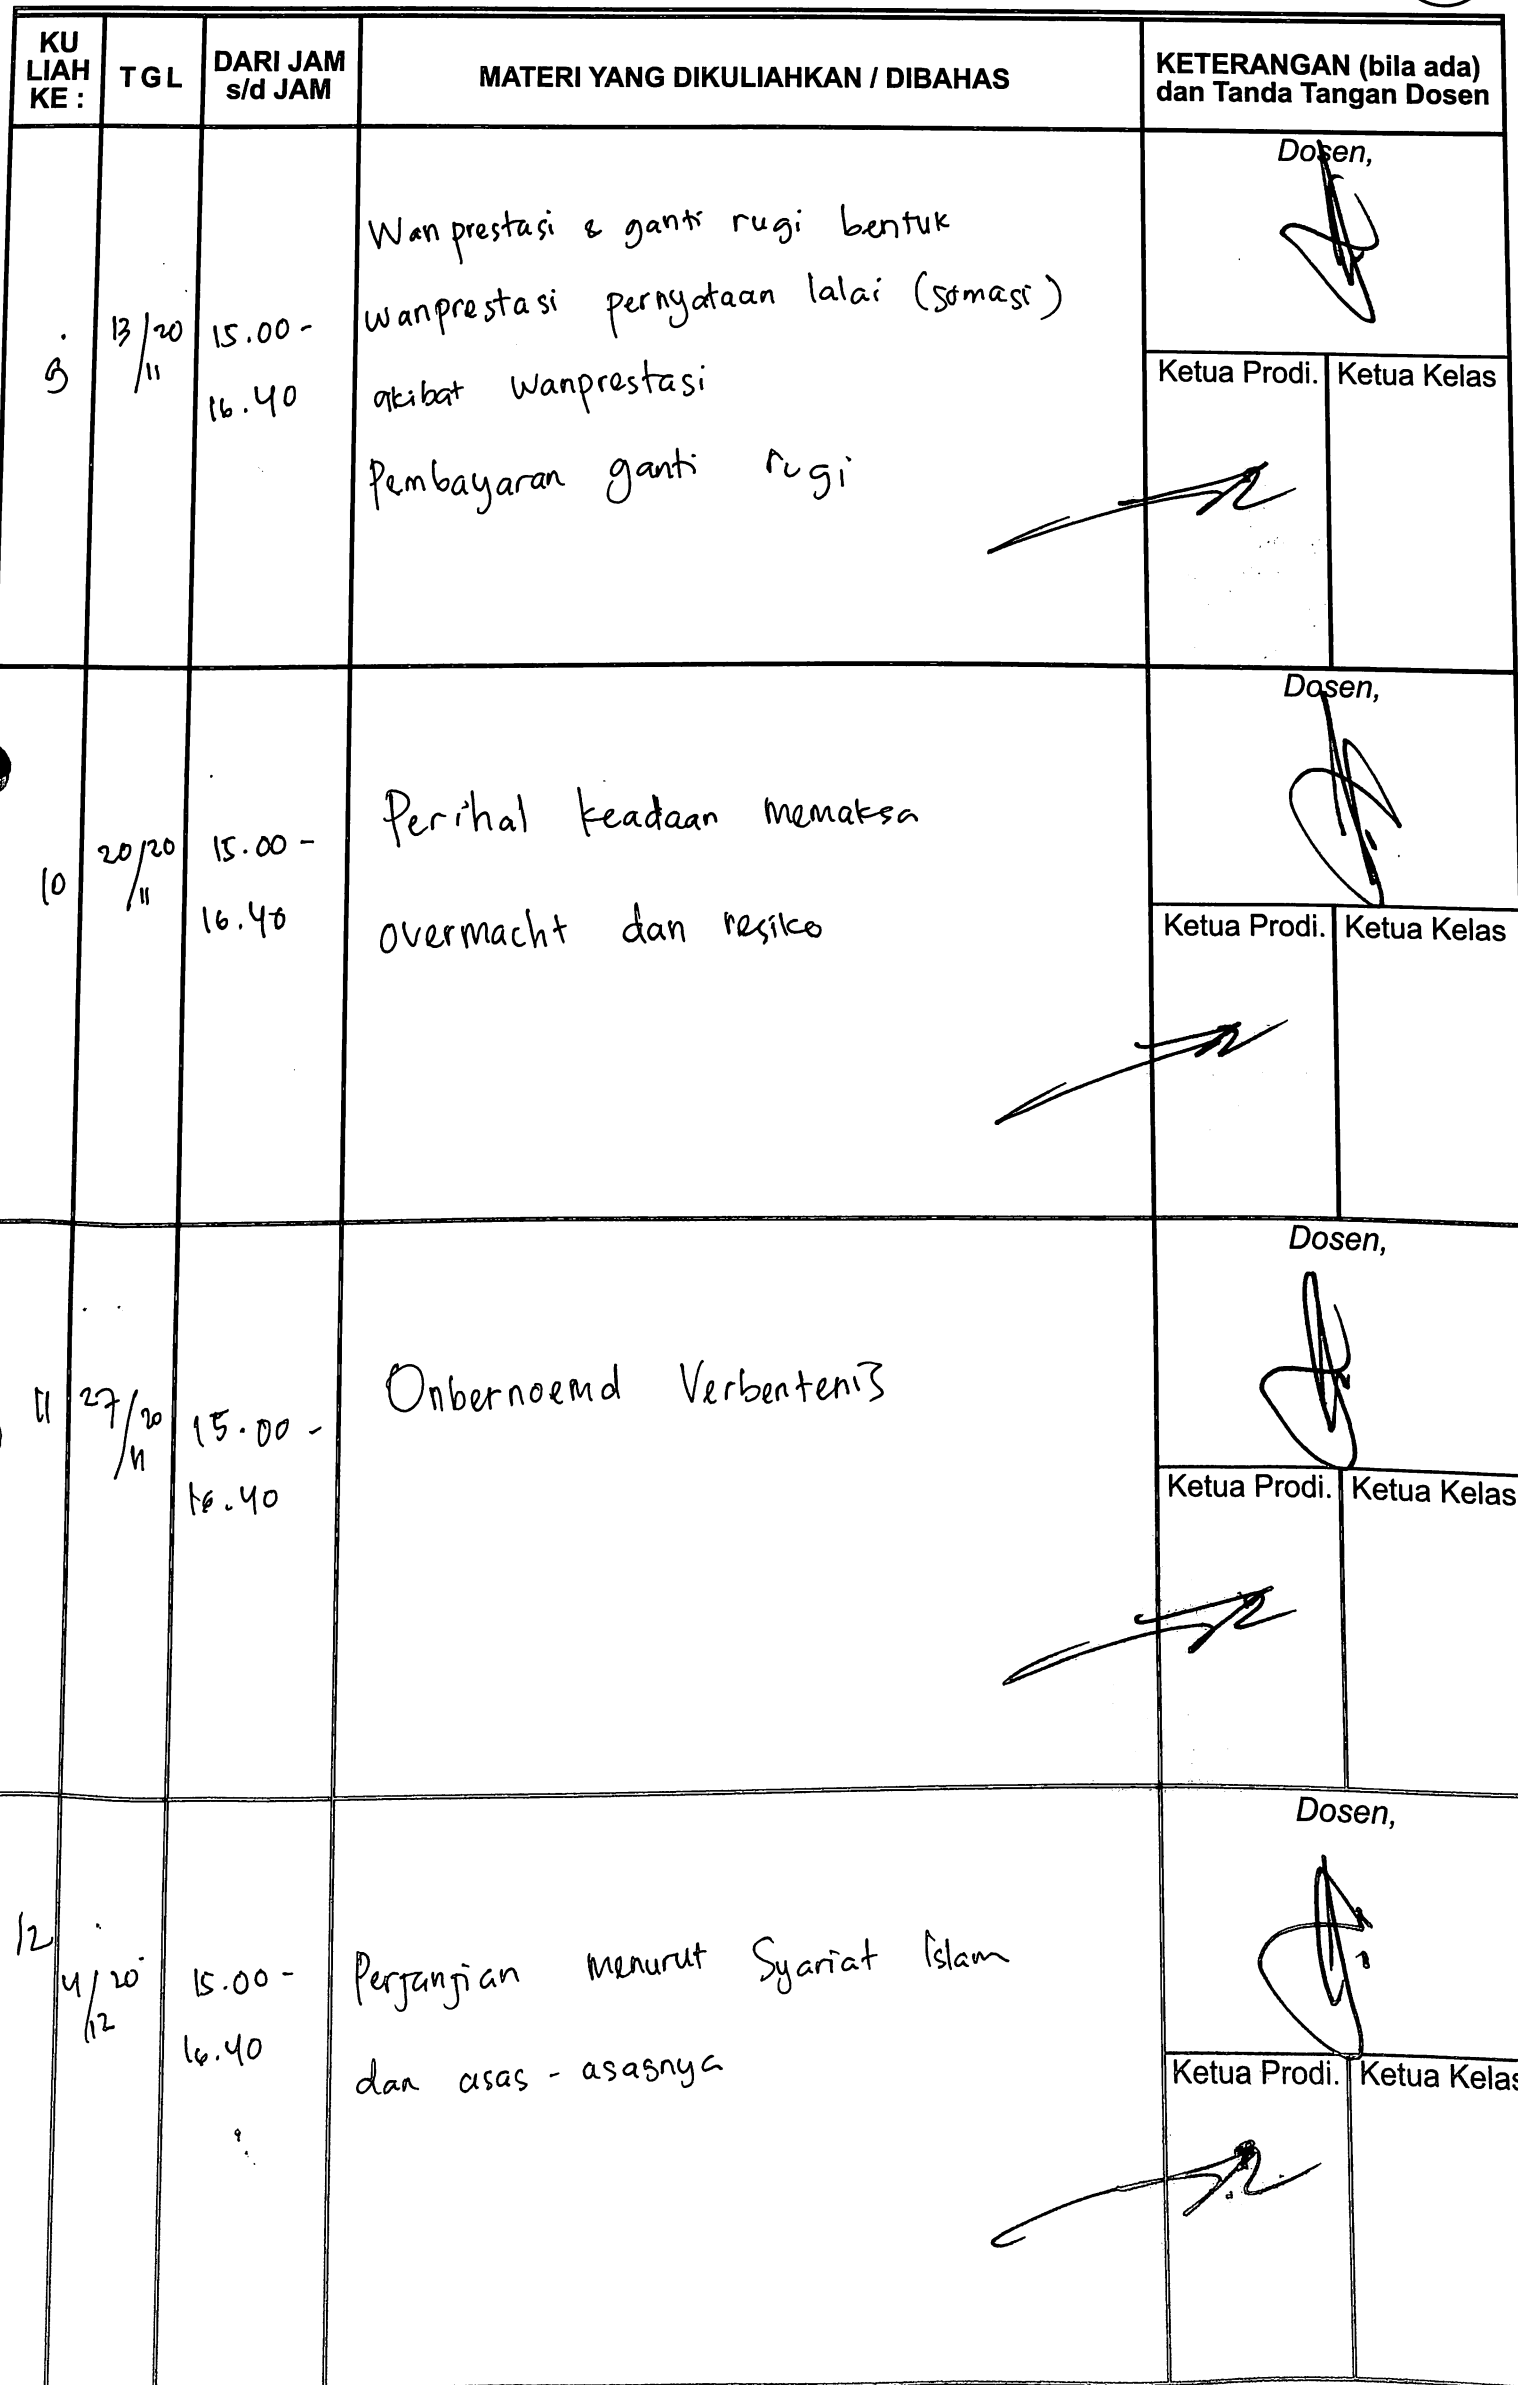 KU LIAH KE :
TGL
DARI JAM s/d JAM
MATERI YANG DIKULIAHKAN / DIBAHAS
KETERANGAN (bila ada) dan Tanda Tangan Dosen
9
13/20
/11
15.00 -
16.40
Wanprestasi & ganti rugi bentuk
wanprestasi pernyataan lalai (somasi)
akibat wanprestasi
Pembayaran ganti rugi
Dosen,
Ketua Prodi.
Ketua Kelas
10
20/20
/11
15.00 -
16.40
Perihal keadaan memaksa
overmacht dan resiko
Dosen,
Ketua Prodi.
Ketua Kelas
11
27/20
/11
15.00 -
16.40
Onbernoemd Verbentenis
Dosen,
Ketua Prodi.
Ketua Kelas
12
4/20
/12
15.00 -
16.40
Perjanjian menurut Syariat Islam
dan asas - asasnya
Dosen,
Ketua Prodi.
Ketua Kelas